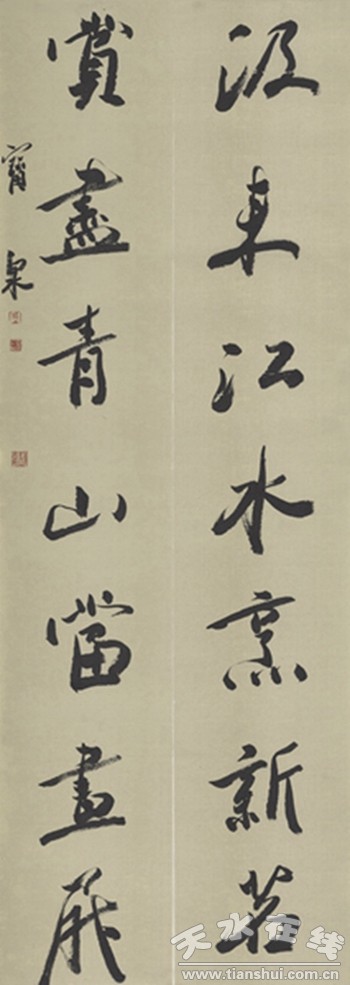 汲來江水烹新茗
賞盡青山當畫屏
泉
天水在线
www.tianshui.com.cn